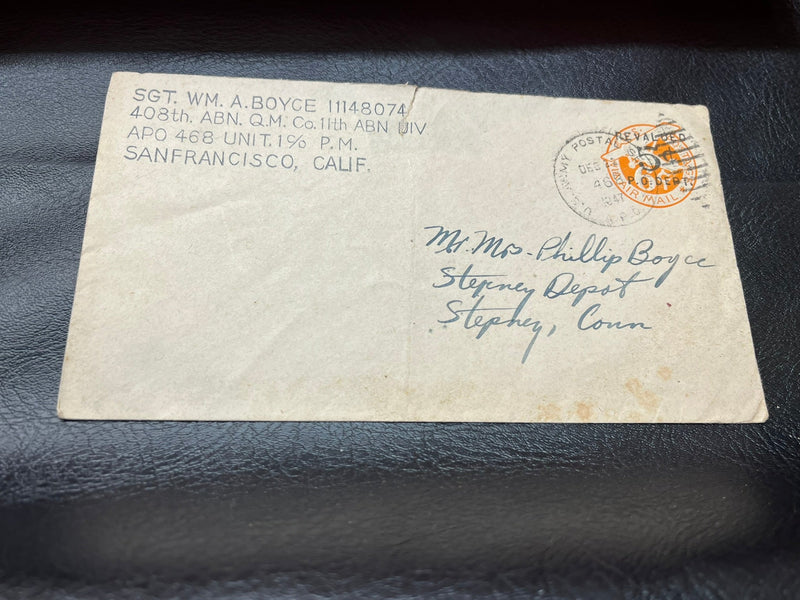 SGT. WM. A. BOYCE 11148074
408th. ABN. Q.M. Co. 11th ABN DIV
APO 468 UNIT. 1 % P.M.
SANFRANCISCO, CALIF.
REVALUED
5¢
P.O. DEPT.
AIR MAIL
U.S. ARMY POSTAL
DEC
46
Mr. Mrs. Phillip Boyce
Stepney Depot
Stepney, Conn